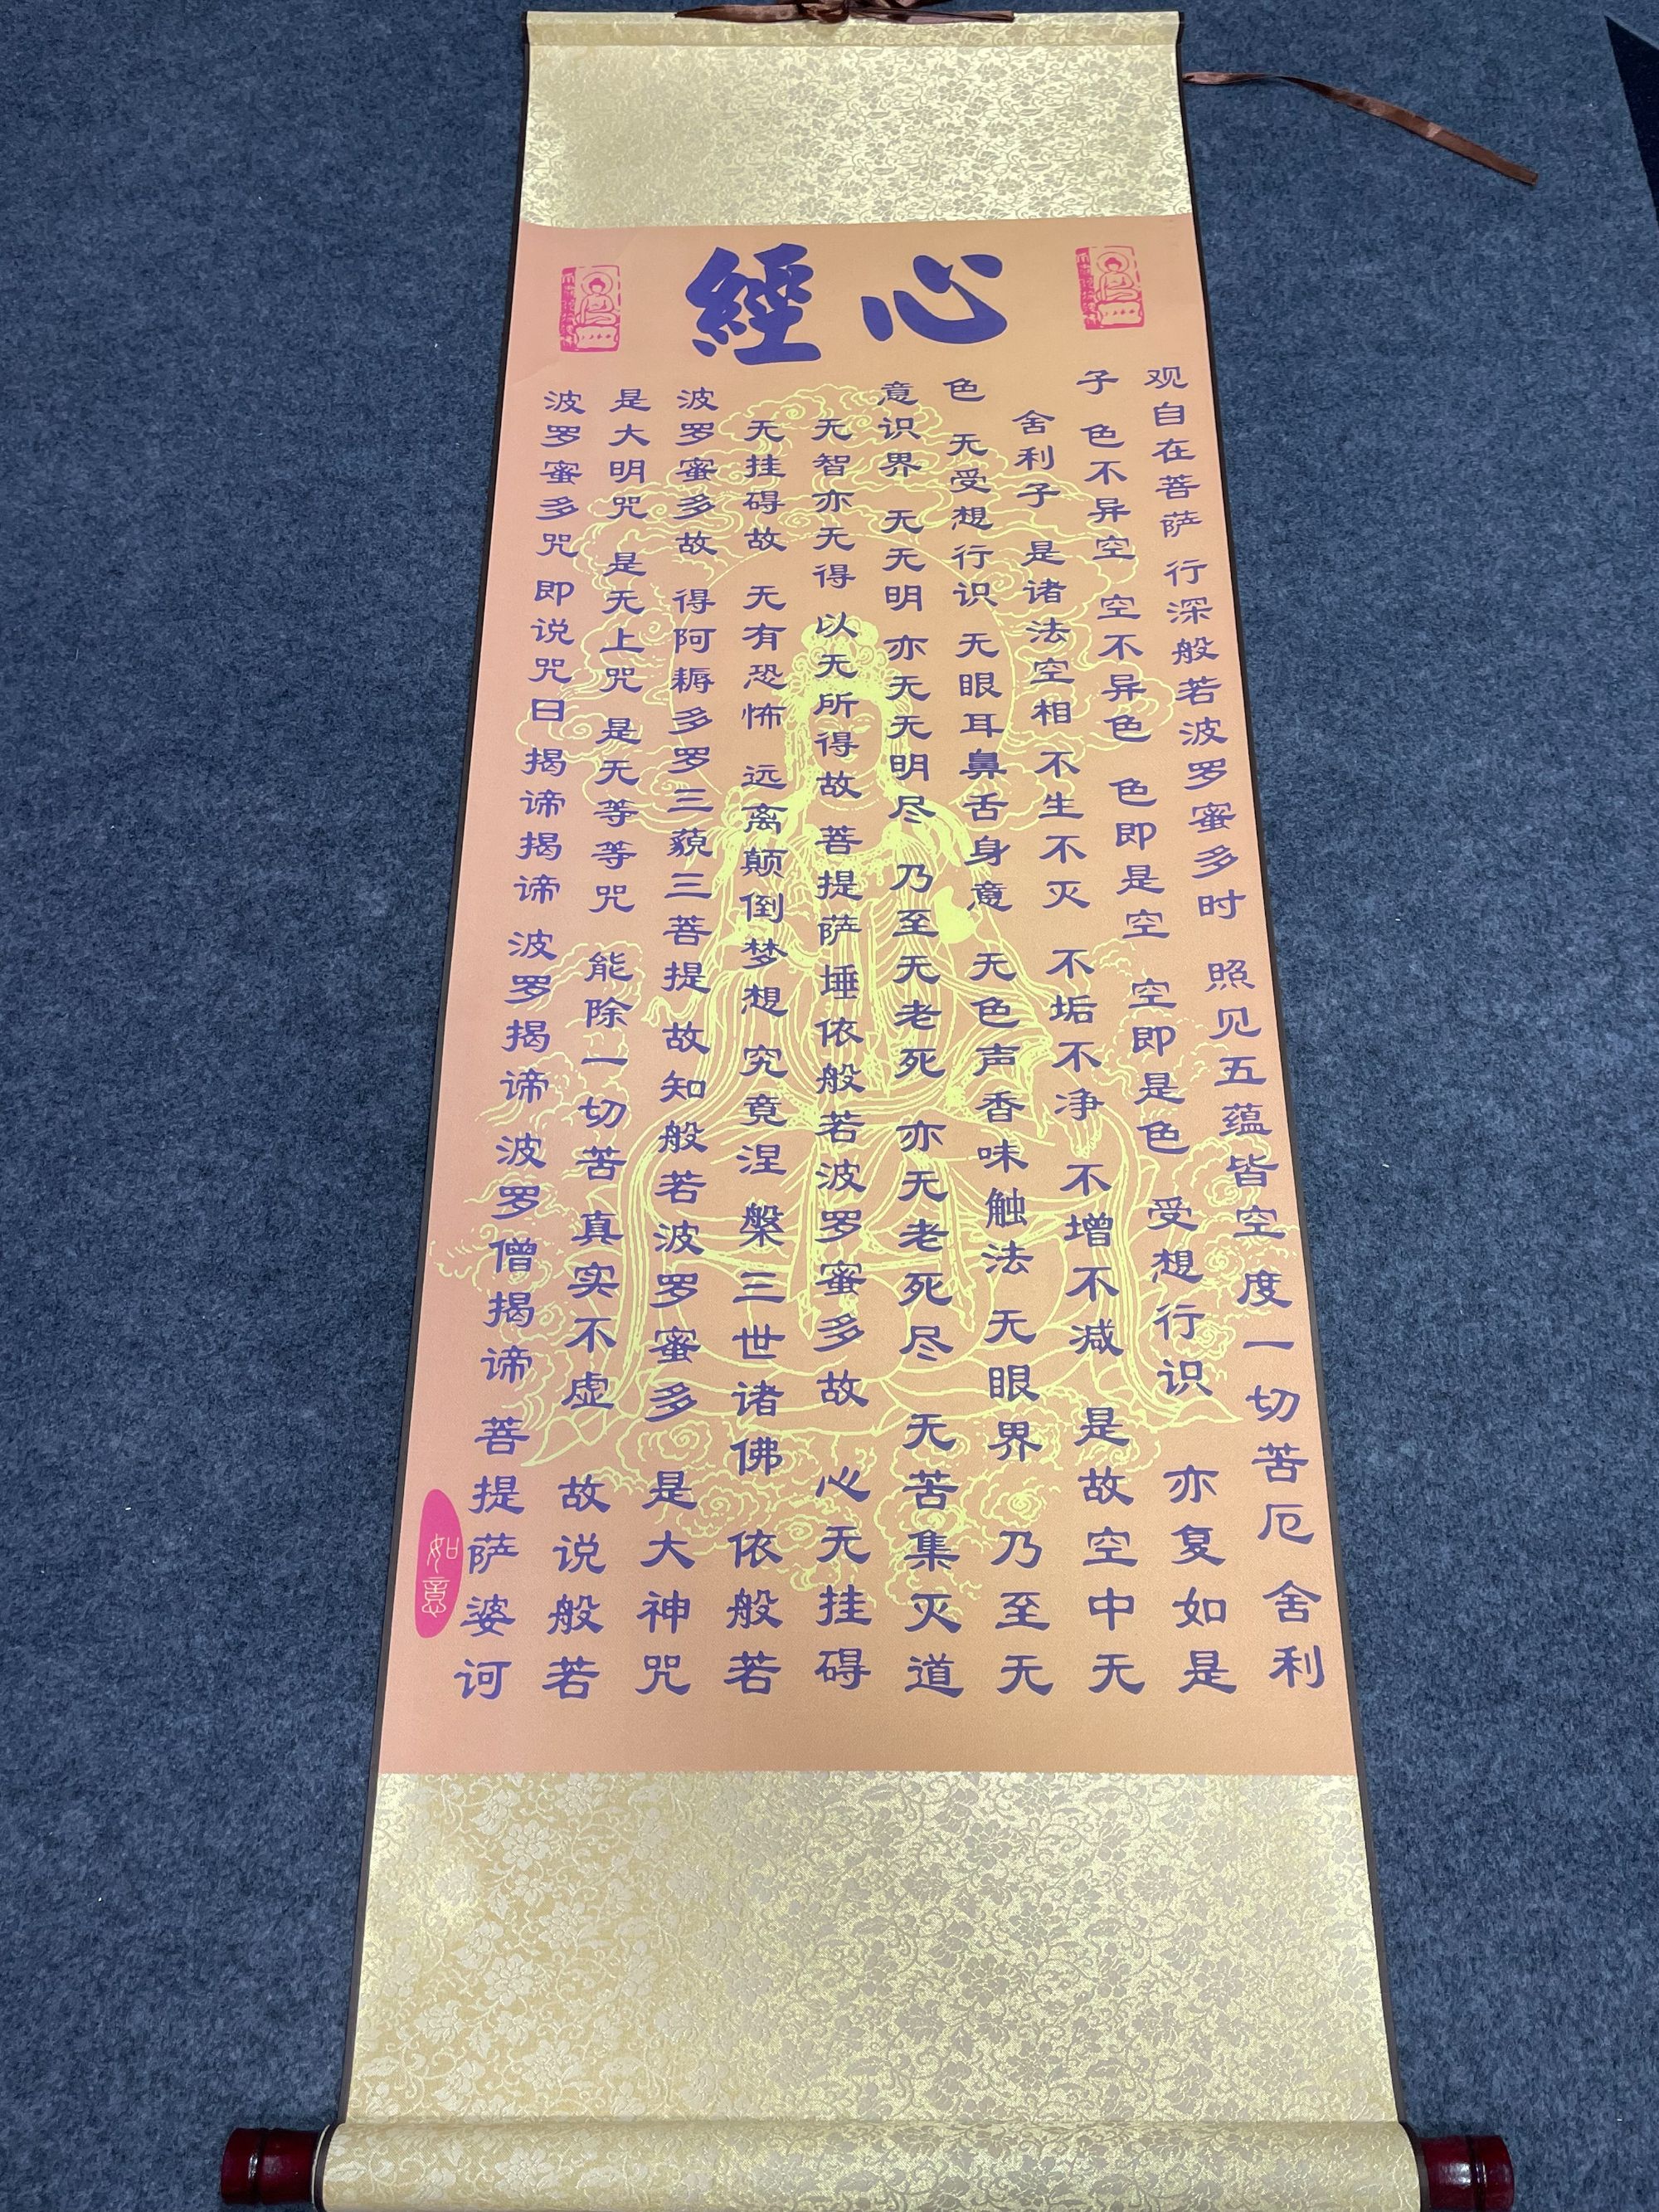 心經
观自在菩萨 行深般若波罗蜜多时 照见五蕴皆空 度一切苦厄 舍利
子 色不异空 空不异色 色即是空 空即是色 受想行识 亦复如是
舍利子 是诸法空相 不生不灭 不垢不净 不增不减 是故空中无
色 无受想行识 无眼耳鼻舌身意 无色声香味触法 无眼界 乃至无
意识界 无无明 亦无无明尽 乃至无老死 亦无老死尽 无苦集灭道
无智亦无得 以无所得故 菩提萨埵 依般若波罗蜜多故 心无挂碍
无挂碍故 无有恐怖 远离颠倒梦想 究竟涅槃 三世诸佛 依般若
波罗蜜多故 得阿耨多罗三藐三菩提 故知般若波罗蜜多 是大神咒
是大明咒 是无上咒 是无等等咒 能除一切苦 真实不虚 故说般若
波罗蜜多咒 即说咒曰 揭谛揭谛 波罗揭谛 波罗僧揭谛 菩提萨婆诃
如意